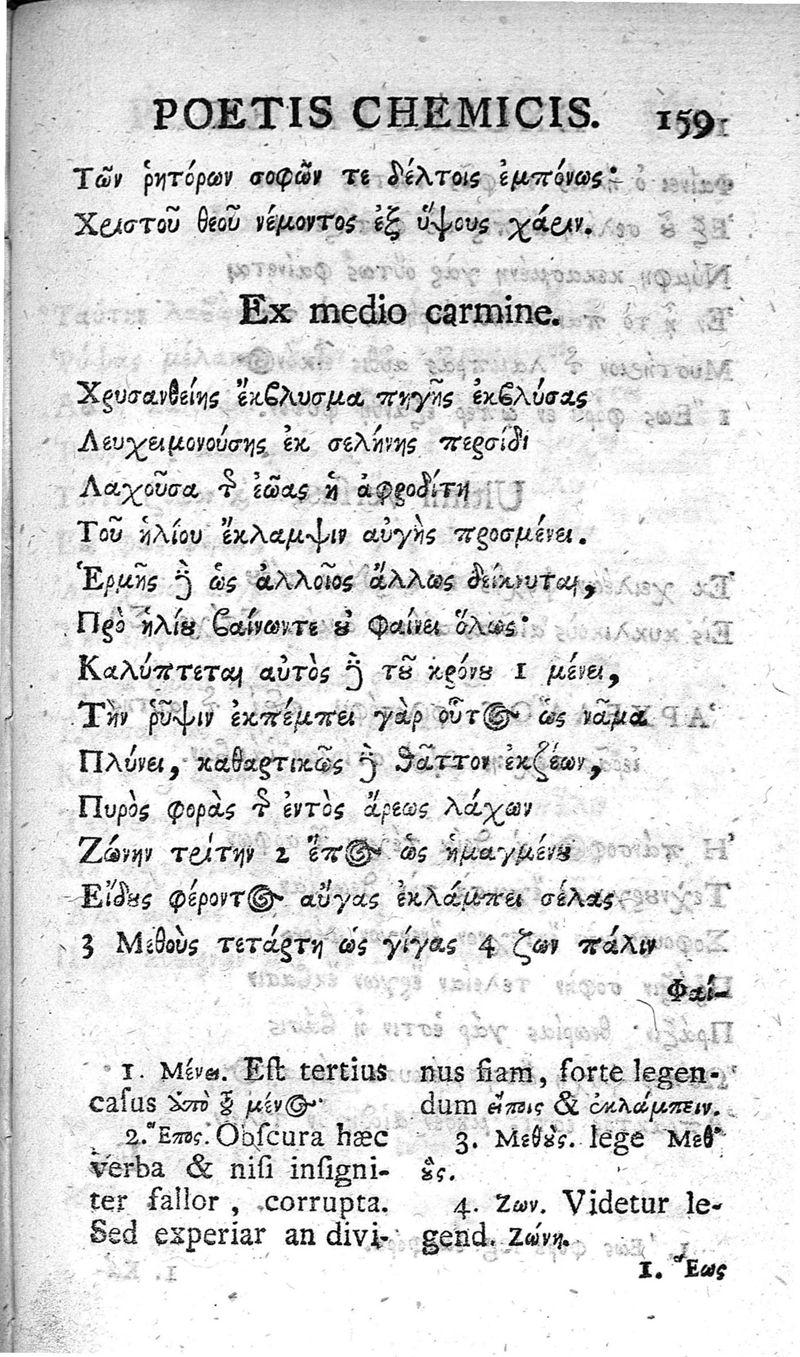 POETIS CHEMICIS. 159
Τῶν ῥητόρων σοφῶν τε δέλτοις ἐμπόνως·
Χριστοῦ θεοῦ νέμοντος ἐξ ὕψους χάριν.
Ex medio carmine.
Χρυσανθείης ἔκβλυσμα πηγῆς ἐκβλύσας
Λευχειμονούσης ἐκ σελήνης περσίδι
Λαχοῦσα τ ἑῶας ἡ ἀφροδίτη
Τοῦ ἡλίου ἔκλαμψιν αὐγὴς προσμένει.
Ἑρμῆς δὲ ὡς ἀλλοῖος ἄλλως δείκνυται,
Πρὸ ἡλίȣ βαίνωντε ȣ φαίνει ὅλως·
Καλύπτεται αὐτὸς δὲ τȣ κρόνȣ 1 μένει,
Τὴν ῥῦψιν ἐκπέμπει γὰρ οὗτος ὡς νᾶμα
Πλύνει, καθαρτικῶς δὲ θᾶττον ἐκζέων,
Πυρὸς φορὰς τ ἐντὸς ἄρεως λάχων
Ζώνην τρίτην 2 ἔπος ὡς ἡμαγμένȣ
Εἴδȣς φέροντος αὔγας ἐκλάμπει σέλας
3 Μεθοὺς τετάρτη ὡς γίγας 4 ζων πάλιν
Φαί-
1. Μένει. Eſt tertius
caſus ὑπὸ τ μένος·
2. Ἔπος. Obſcura hæc
verba & niſi inſigni-
ter fallor, corrupta.
Sed experiar an divi-
nus fiam, forte legen-
dum εἴποις & ἐκλάμπειν.
3. Μεθȣς. lege Μεθ'
ȣς.
4. Ζων. Videtur le-
gend. Ζώνη.
1. Ἕως